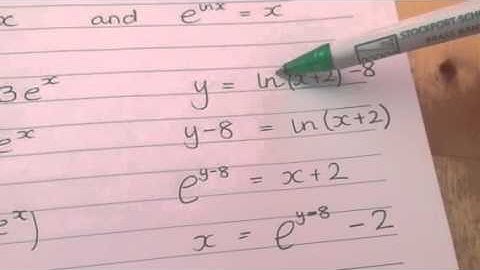 x and e^lnx = x
STOCKPORT SCH
3e^x y = ln(x+2) -8
e^x y-8 = ln(x+2)
e^y-8 = x+2
e^x) x = e^y-8 -2